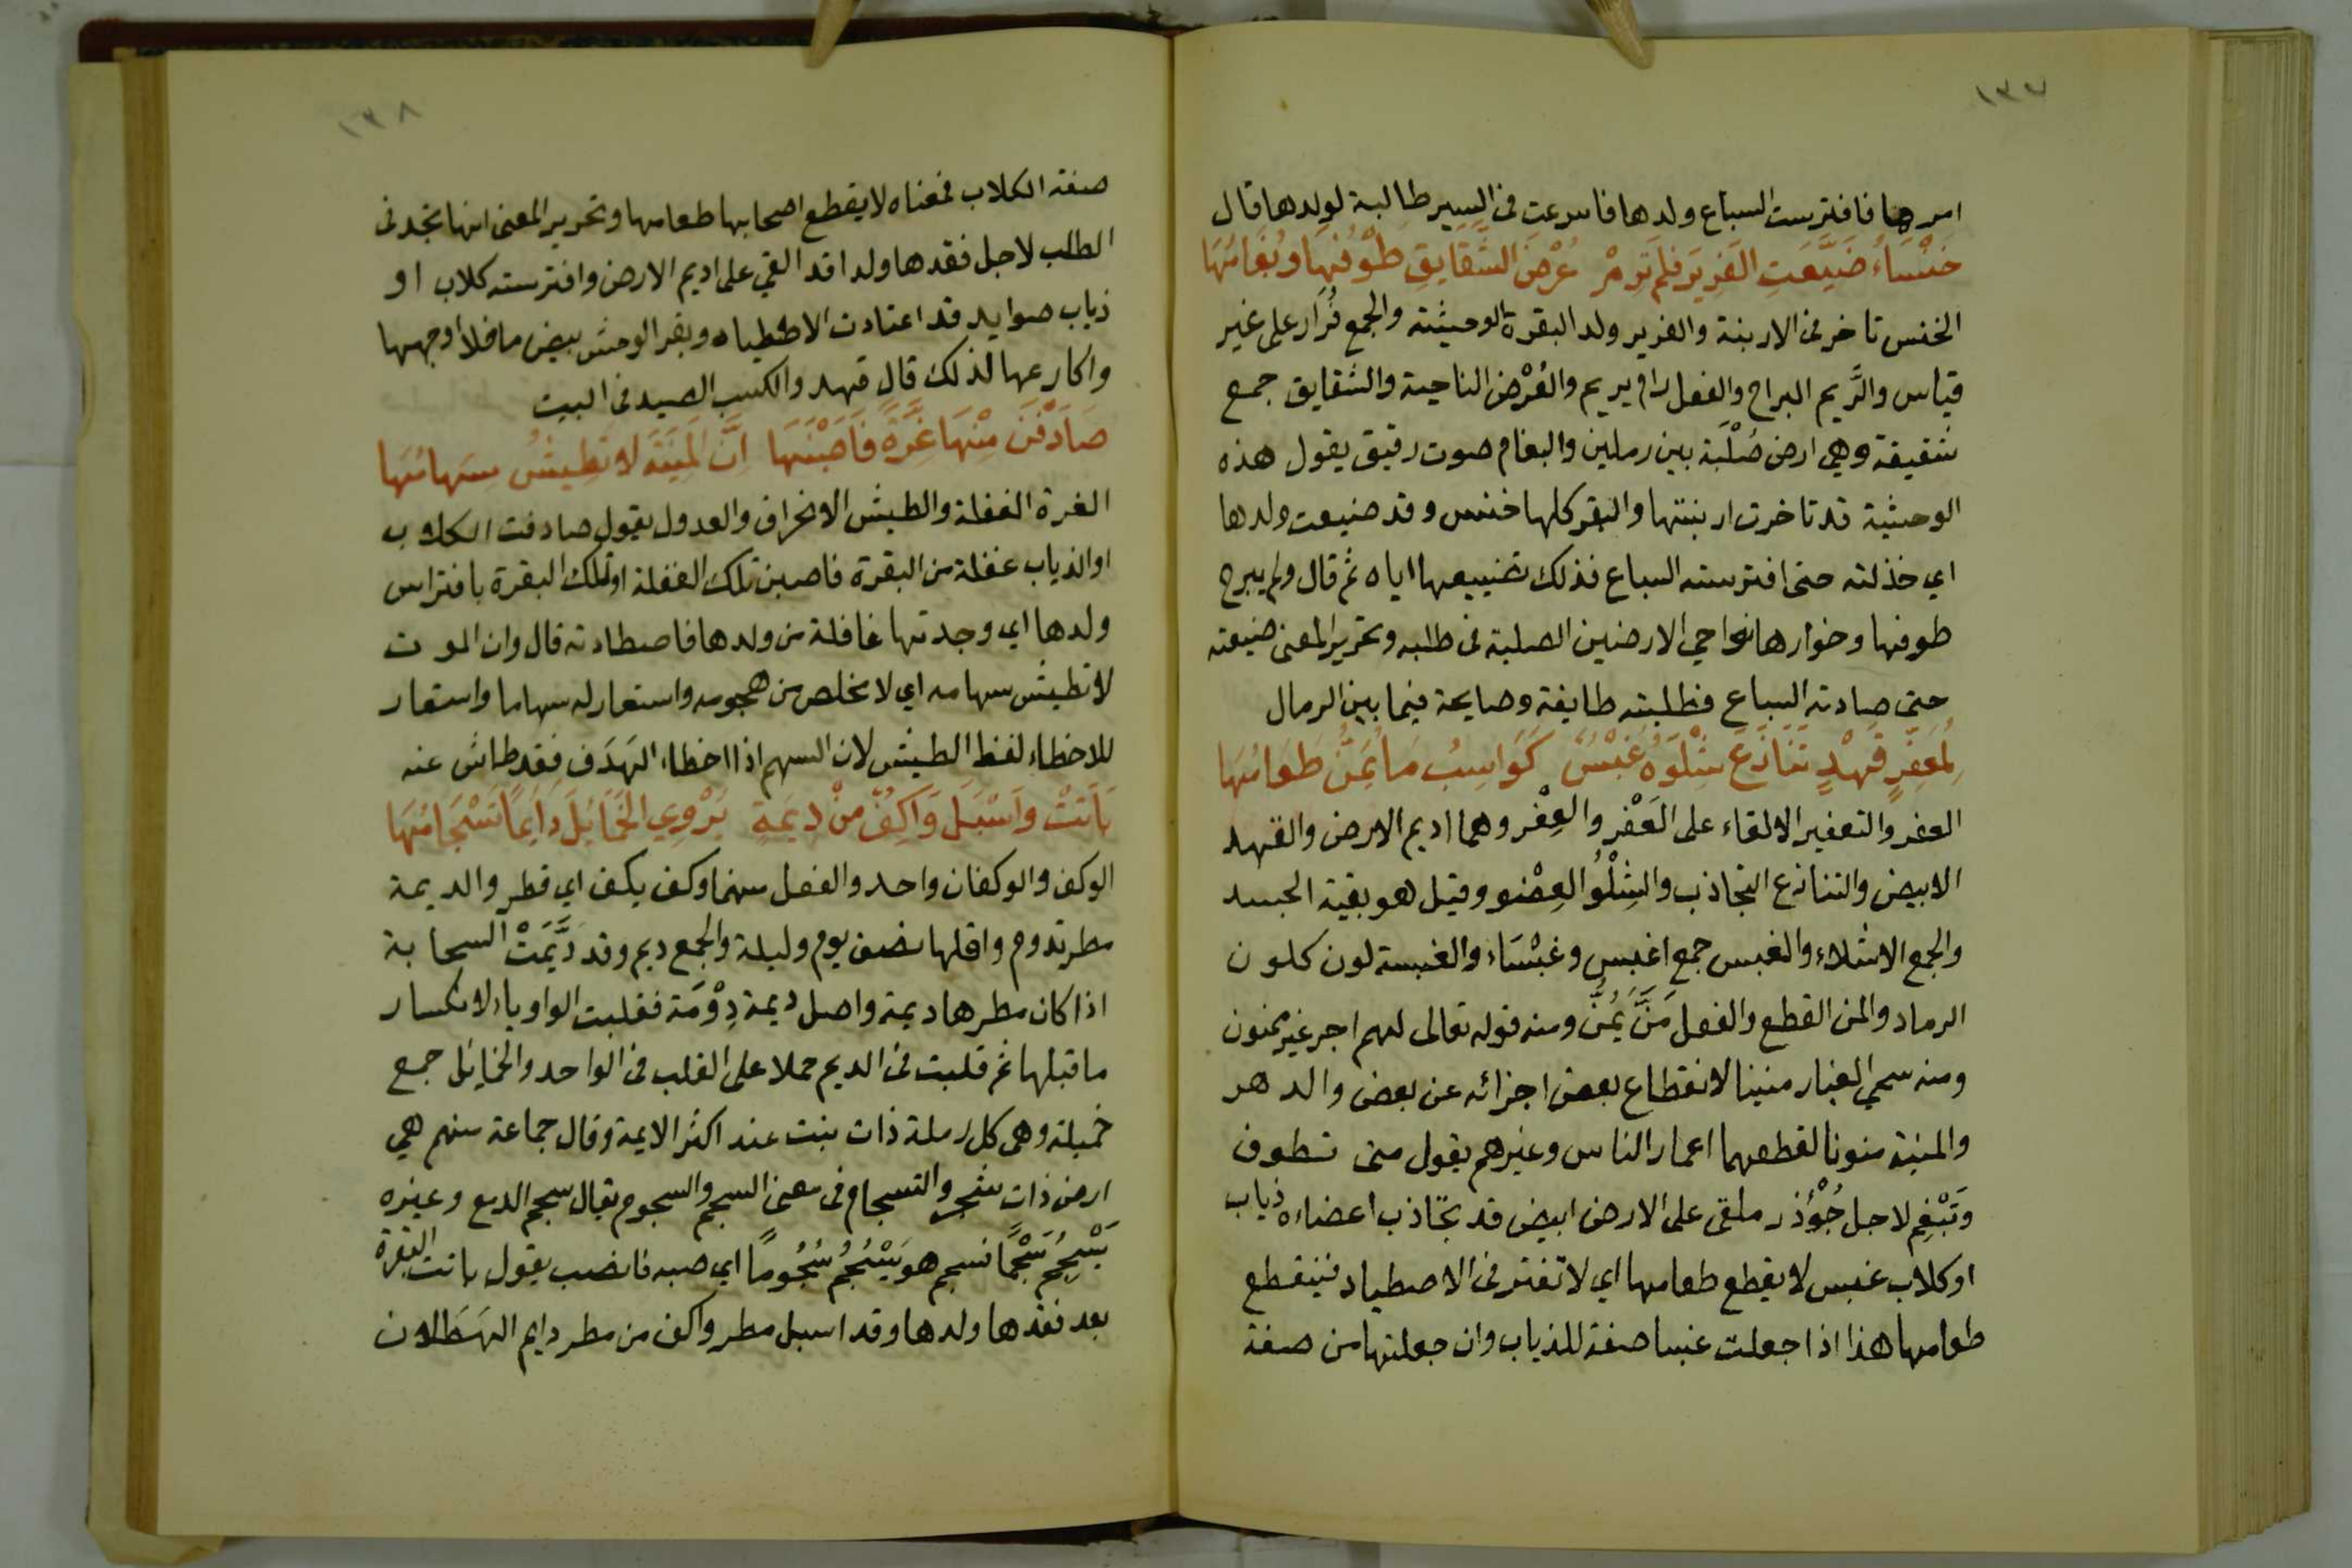 ١٣٧
امرها فافترست السباع ولدها فاسرعت في السير طالبة لولدها قال
خَنْسَاءُ ضَيَّعَتِ الفَرِيرَ فلَم يَرِمْ عُرْضَ الشَّقَايِقِ طَوْفُهَا وَبُغَامُهَا
الخنس تاخر في الاربنة والفرير ولد البقرة الوحشية والجمع فُرَار على غير
قياس والرَّيم البراح والفعل رام يريم والعُرْض الناحية والشقايق جمع
شقيقة وهي ارض صُلْبَة بين رملين والبغام صوت رقيق يقول هذه
الوحشية قد تاخرت اربنتها والبقر كلها خنس وقد ضيعت ولدها
اي خذلته حتى افترسته السباع فذلك تضييعها اياه ثم قال ولم يبرح
طوفها وخوارها نواحي الارضين الصلبة في طلبه وتحرير المعنى ضيعته
حتى صادته السباع فطلبته طايفة وصايحة فيما بين الرمال
لِمُعَفَّرٍ قَهْدٍ تَنَازَعَ شِلْوَهُ غُبْسٌ كَوَاسِبُ مَا يُمَنُّ طَعَامُهَا
العفر والتعفير الالقاء على العَفْر والعِفْر وهما اديم الارض والقهد
الابيض والتنازع التجاذب والشِلْوُ العِضْو وقيل هو بقية الجسد
والجمع الاشلاء والغبس جمع اغبس وغَبْسَاء والغبسة لون كلون
الرماد والمن القطع والفعل مَنَّ يَمُنُّ ومنه قوله تعالى لهم اجر غير ممنون
ومنه سمي الغبار منينا لانقطاع بعض اجزائه عن بعض والدهر
والمنية منونا لقطعهما اعمار الناس وغيرهم يقول متى تطوف
وَتَبْغِم لاجل جُوْذر ملقى على الارض ابيض قد تجاذب اعضاءه ذياب
او كلاب غبس لا يقطع طعامها اي لا تفتر في الاصطياد فينقطع
طعامها هذا اذا جعلت غبسا صفة للذياب وان جعلتها من صفة
١٣٨
صفة الكلاب فمعناه لا يقطع اصحابها طعامها وتحرير المعنى انها تجد في
الطلب لاجل فقدها ولدا قد القي على اديم الارض وافترسته كلاب او
ذياب صوايد قد اعتادت الاصطياد وبقر الوحش بيض ما خلا اوجهها
واكارعها لذلك قال قهد والكسب الصيد في البيت
صَادَفْنَ مِنْهَا غِرَّةً فَاَصَبْنَهَا اِنَّ المَنِيَّةَ لَا تَطِيشُ سِهَامُهَا
الغرة الغفلة والطيش الانحراف والعدول يقول صادفت الكلاب
او الذياب غفلة من البقرة فاصبن تلك الغفلة او تلك البقرة بافتراس
ولدها اي وجدتها غافلة من ولدها فاصطادته قال وان الموت
لا تطيش سهامه اي لا مخلص من هجومه واستعار له سهاما واستعار
للاخطاء لفظ الطيش لان السهم اذا اخطاء الهَدَف فقد طاش عنه
بَاتَتْ وَاَسْبَلَ وَاكِفٌ مِنْ دِيمَةٍ يَرْوِي الخَمَايِلَ دَايِمًا تَسْجَامُهَا
الوكف والوكفان واحد والفعل منهما وكف يكف اي قطر والديمة
مطر تدوم واقلها نصف يوم وليلة والجمع ديم وقد دَيَّمَتْ السحابة
اذا كان مطرها ديمة واصل ديمة دِوْمَة فقلبت الواو ياء لانكسار
ما قبلها ثم قلبت في الديم حملا على القلب في الواحد والخمايل جمع
خميلة وهي كل رملة ذات نبت عند اكثر الايمة وقال جماعة منهم هي
ارض ذات شجر والتسجام في معنى السجم والسجوم يقال سجم الدمع وغيره
يَسْجِمُ سَجْمًا فسجم هو يَسْجُمُ سُجُومًا اي صبه فانصب يقول باتت البقرة
بعد فقدها ولدها وقد اسبل مطر واكف من مطر دايم الهَطَلان